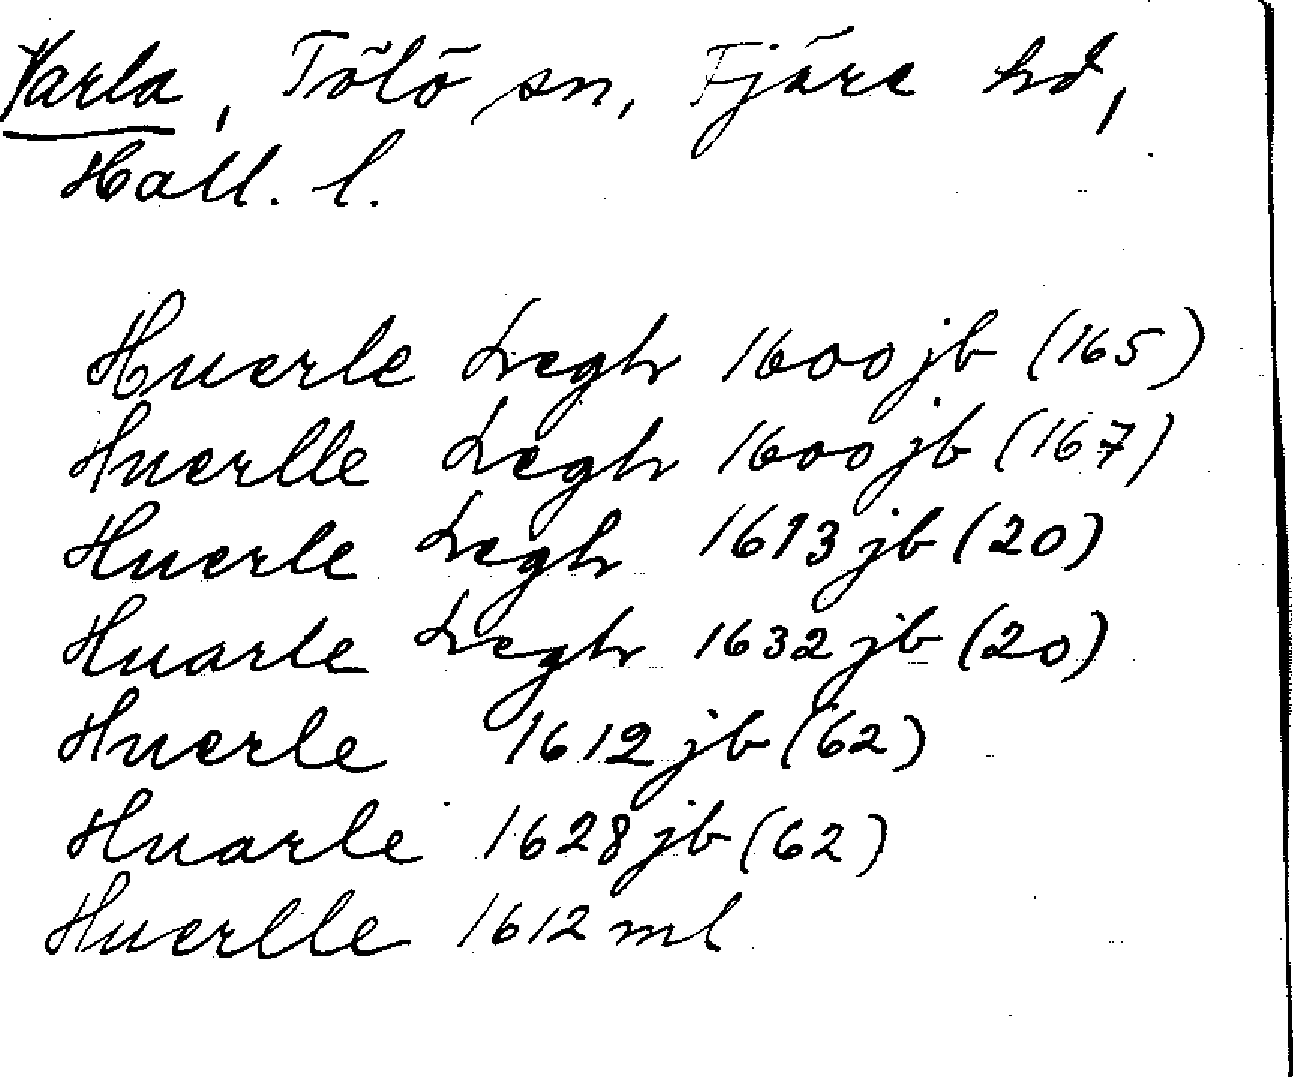 Varla, Tölö sn, Fjäre hd,
Hall. l.
Huerle Lægh 1600 jb (165)
Huerlle Lægh 1600 jb (167)
Huerle Lægh 1613 jb (20)
Huarle Lægh 1632 jb (20)
Huerle 1612 jb (62)
Huarle 1628 jb (62)
Huerlle 1612 ml